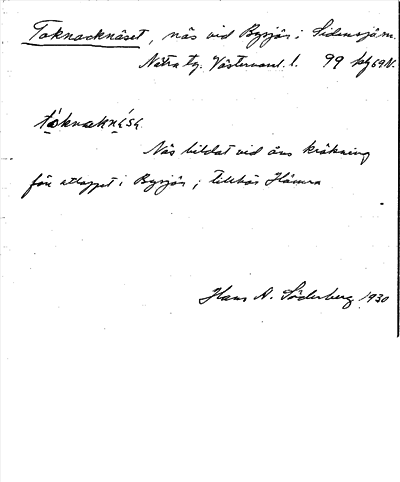 Toknacknäset, näs vid Bysjön i Sidensjö sn.
Nätra tg. Västernorrl. l. 99
tóknaknǽsə
Näs bildat vid åns krökning
från utloppet i Bysjön; tillhör
Hans A. Söderberg 1930